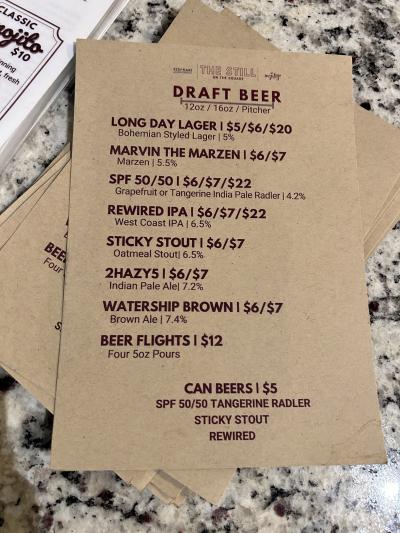 CLASSIC
Mojito
$10
fresh
THE STILL
ON THE SQUARE
DRAFT BEER
12oz / 16oz / Pitcher
LONG DAY LAGER | $5/$6/$20
Bohemian Styled Lager | 5%
MARVIN THE MARZEN | $6/$7
Marzen | 5.5%
SPF 50/50 | $6/$7/$22
Grapefruit or Tangerine India Pale Radler | 4.2%
REWIRED IPA | $6/$7/$22
West Coast IPA | 6.5%
STICKY STOUT | $6/$7
Oatmeal Stout| 6.5%
2HAZY5 | $6/$7
Indian Pale Ale| 7.2%
WATERSHIP BROWN | $6/$7
Brown Ale | 7.4%
BEER FLIGHTS | $12
Four 5oz Pours
CAN BEERS | $5
SPF 50/50 TANGERINE RADLER
STICKY STOUT
REWIRED
BEE
Four